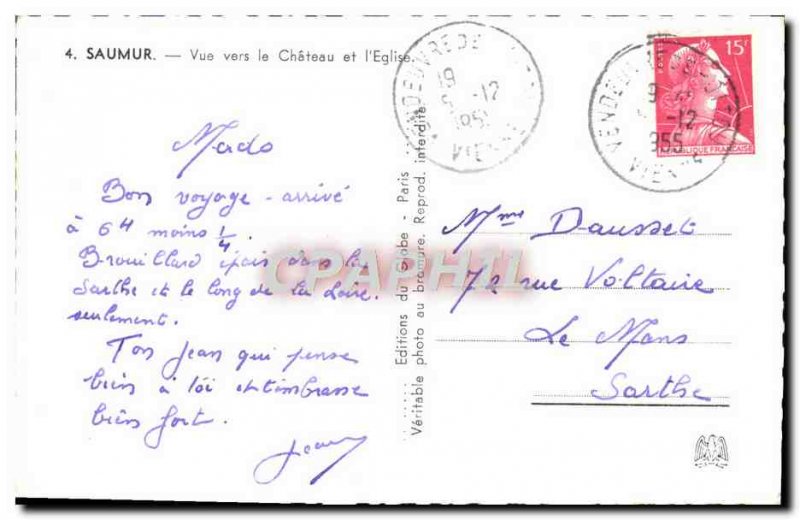 4. SAUMUR. — Vue vers le Château et l'Eglise.
Mado
Bon voyage - arrivé
à 6H moins 1/4.
Brouillard épais dans la
Sarthe et le long de la Loire.
seulement.
Ton Jean qui pense
bien à toi et t'embrasse
bien fort.
Jean
Editions du Globe - Paris
Véritable photo au bromure. Reprod. interdite
19
-12
195
VIENNE
15F
19
-12
1955
VIENNE
REPUBLIQUE FRANÇAISE
Mme Dausset
72 rue Voltaire
Le Mans
Sarthe
CPAPHIL